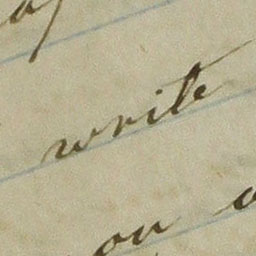 write
on